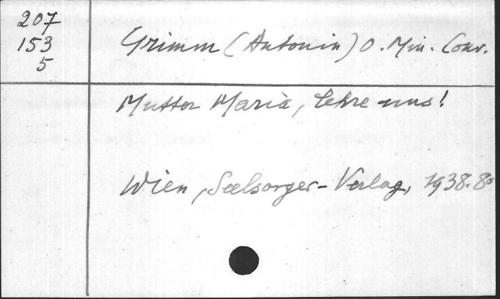 207
153
5
Grimm (Antonin) O. Min. Conv.
Mutter Maria, lehre uns!
Wien, Seelsorger-Verlag, 1938. 8°